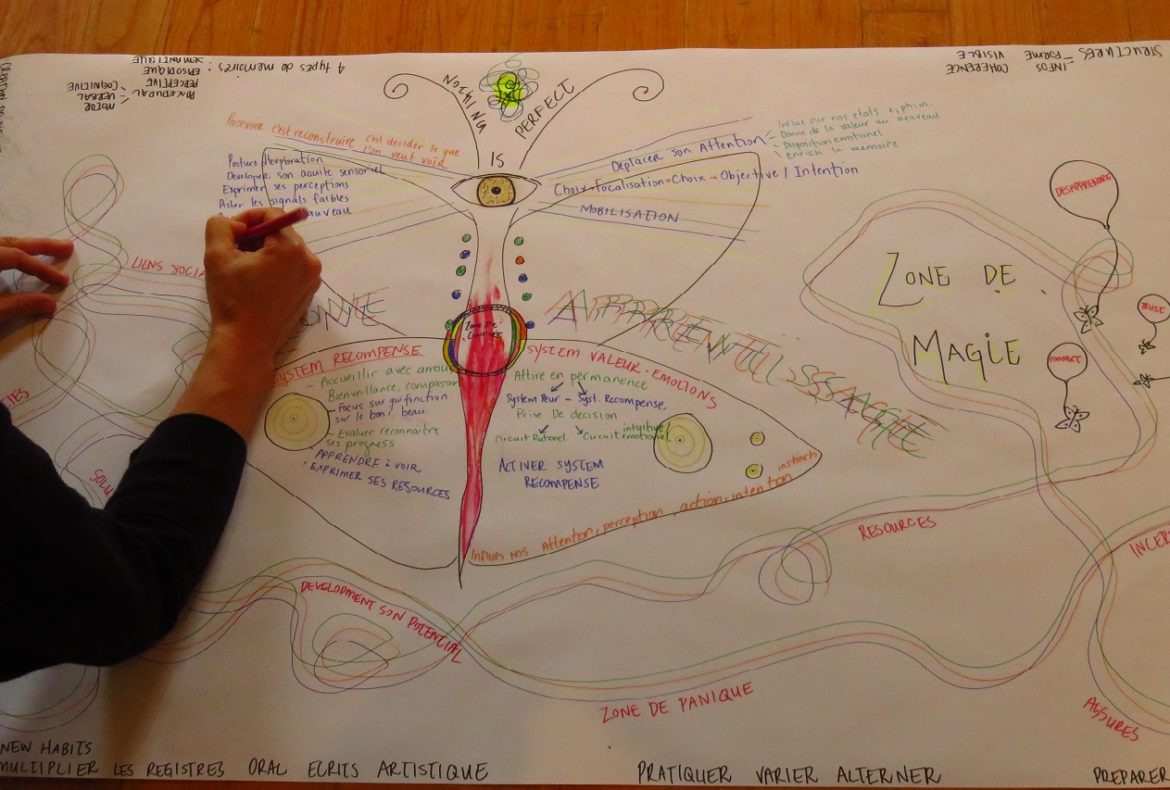 STRUCTURES
INFOS — FORME
COHERENCE VISIBLE
4 types de memoires:
SEMANTIQUE
EPISODIQUE
PERCEPTIVE
PROCEDURAL
VERBAL
COGNITIVE
MOTOR
NOTHING
IS
PERFECT
Percevoir c'est reconstruire c'est decider ce que
l'on veut voir
Posture d'exploration
Developer son acuite sensoriel
Exprimer ses perceptions
les signals faibles
Deplacer son Attention
Influx sur nos etats
Donne de la valeur au nouveau
Disposition emotionel
Enrich la memoire
Choix → Focalisation → Choix → Objective / Intention
MOBILISATION
LIENS
ZONE DE
APPRENTISSAGE
ZONE DE
MAGIE
DESAPPRENDRE
MUSE
SYSTEM RECOMPENSE
Accueillir avec
Bienveillance,
Focus sur qui function
sur le bon, beau.
Evaluer reconnaitre
ses progress
APPRENDRE à VOIR
EXPRIMER SES RESOURCES
SYSTEM VALEUR - EMOTIONS
Attire en permanence
System Peur — Syst. Recompense
Prise De decision
Circuit Rationel Circuit emotionel
intuitive
ACTIVER SYSTEM
RECOMPENSE
instincts
Influes nos Attention, perception, action, intention
RESOURCES
DEVELOPMENT SON POTENTIAL
ZONE DE PANIQUE
ASSURES
NEW HABITS
MULTIPLIER LES REGISTRES ORAL ECRITS ARTISTIQUE
PRATIQUER VARIER ALTERNER
PREPARER